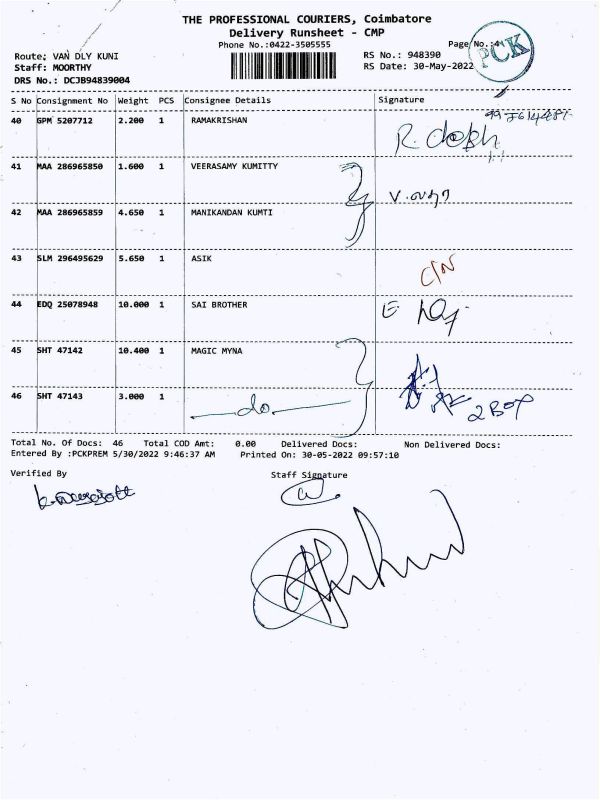 THE PROFESSIONAL COURIERS, Coimbatore
Delivery Runsheet - CMP
Phone No.:0422-3505555
Page No.:4
PCK
Route: VAN DLY KUNI
RS No.: 948390
Staff: MOORTHY
RS Date: 30-May-2022
DRS No.: DCJB94839004
S No Consignment No Weight PCS Consignee Details Signature
40 GPM 5207712 2.200 1 RAMAKRISHAN
41 MAA 286965850 1.600 1 VEERASAMY KUMITTY
42 MAA 286965859 4.650 1 MANIKANDAN KUMTI
43 SLM 296495629 5.650 1 ASIK C/N
44 EDQ 25078948 10.000 1 SAI BROTHER
45 SHT 47142 10.400 1 MAGIC MYNA
46 SHT 47143 3.000 1 do 2 Box
Total No. Of Docs: 46 Total COD Amt: 0.00 Delivered Docs: Non Delivered Docs:
Entered By :PCKPREM 5/30/2022 9:46:37 AM Printed On: 30-05-2022 09:57:10
Verified By Staff Signature